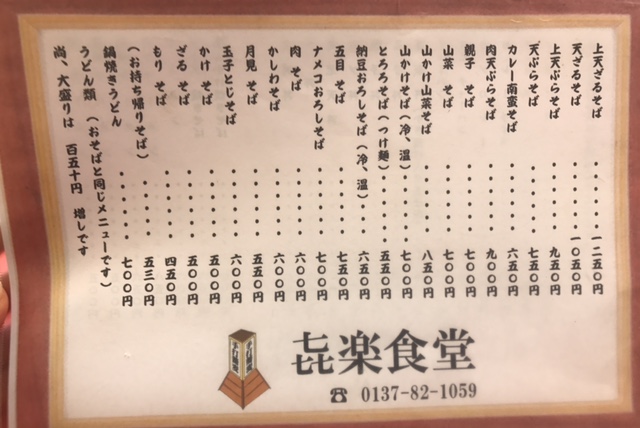 上天ざるそば ・・・・・・ 一二五〇円
天ざるそば ・・・・・・ 一〇五〇円
上天ぷらそば ・・・・・・ 九五〇円
天ぷらそば ・・・・・・ 七五〇円
カレー南蛮そば ・・・・・・ 六五〇円
肉天ぷらそば ・・・・・・ 九〇〇円
親子 そば ・・・・・・ 七〇〇円
山菜 そば ・・・・・・ 七〇〇円
山かけ山菜そば ・・・・・・ 八五〇円
山かけそば（冷、温）・・・・・ 七〇〇円
とろろそば（つけ麺）・・・・・ 五五〇円
納豆おろしそば（冷、温）・・・ 六五〇円
五目 そば ・・・・・・ 七五〇円
ナメコおろしそば ・・・・・・ 七〇〇円
肉 そば ・・・・・・ 六〇〇円
かしわそば ・・・・・・ 六〇〇円
月見 そば ・・・・・・ 五五〇円
玉子とじそば ・・・・・・ 六〇〇円
かけ そば ・・・・・・ 五〇〇円
ざる そば ・・・・・・ 五〇〇円
もり そば ・・・・・・ 四五〇円
（お持ち帰りそば）・・・・・ 五三〇円
鍋焼きうどん ・・・・・・ 七〇〇円
うどん類 （おそばと同じメニューです）
尚、大盛りは 百五十円 増しです
㐂楽食堂
☎ 0137-82-1059